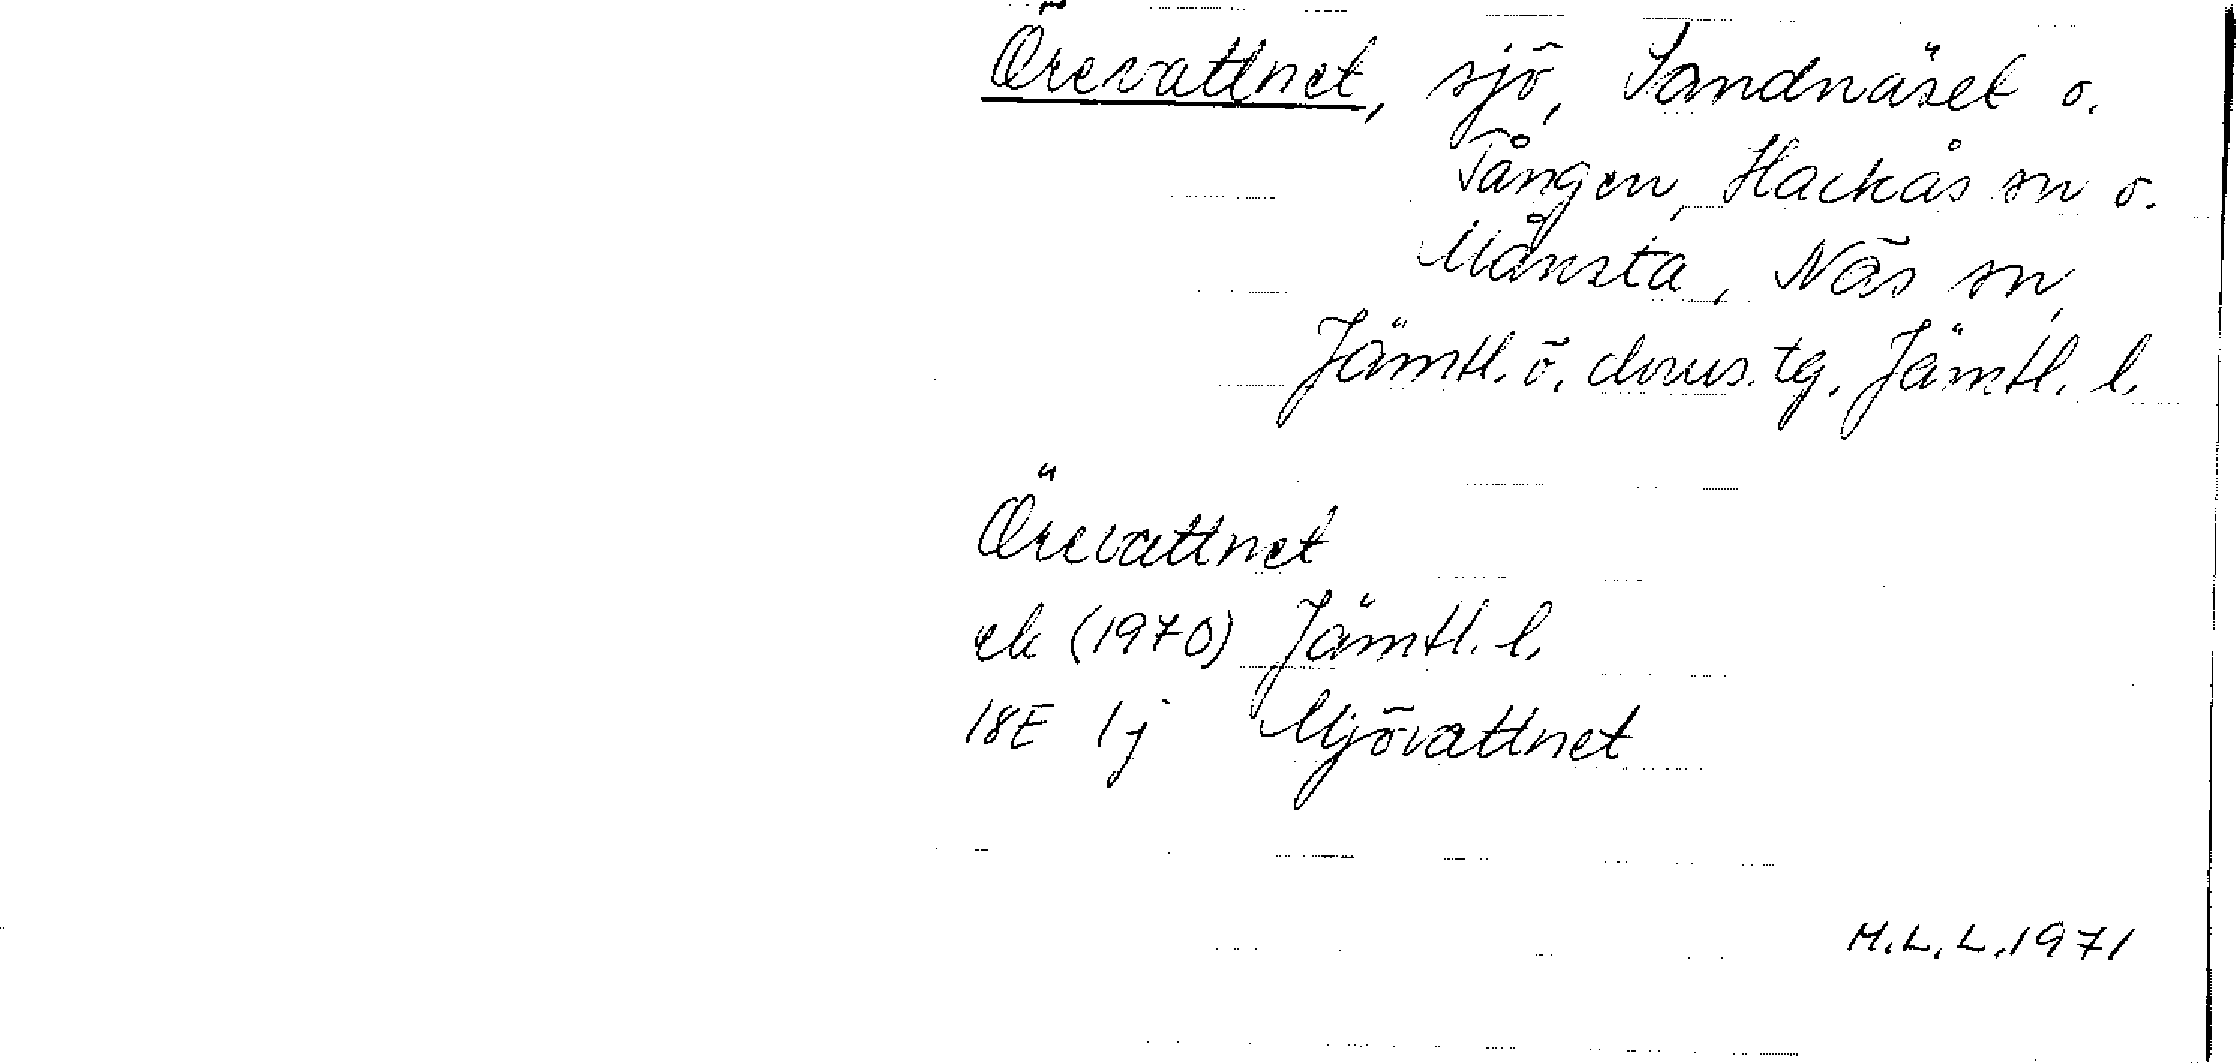 Örevattnet, sjö, Sandnäset o.
Tången, Hackås sn o.
Månsta, Näs sn,
Jämtl. ö. doms. tg. Jämtl. l.
Örevattnet
ek (1970) Jämtl. l.
18E 1j Mjövattnet
M.L.L. 1971